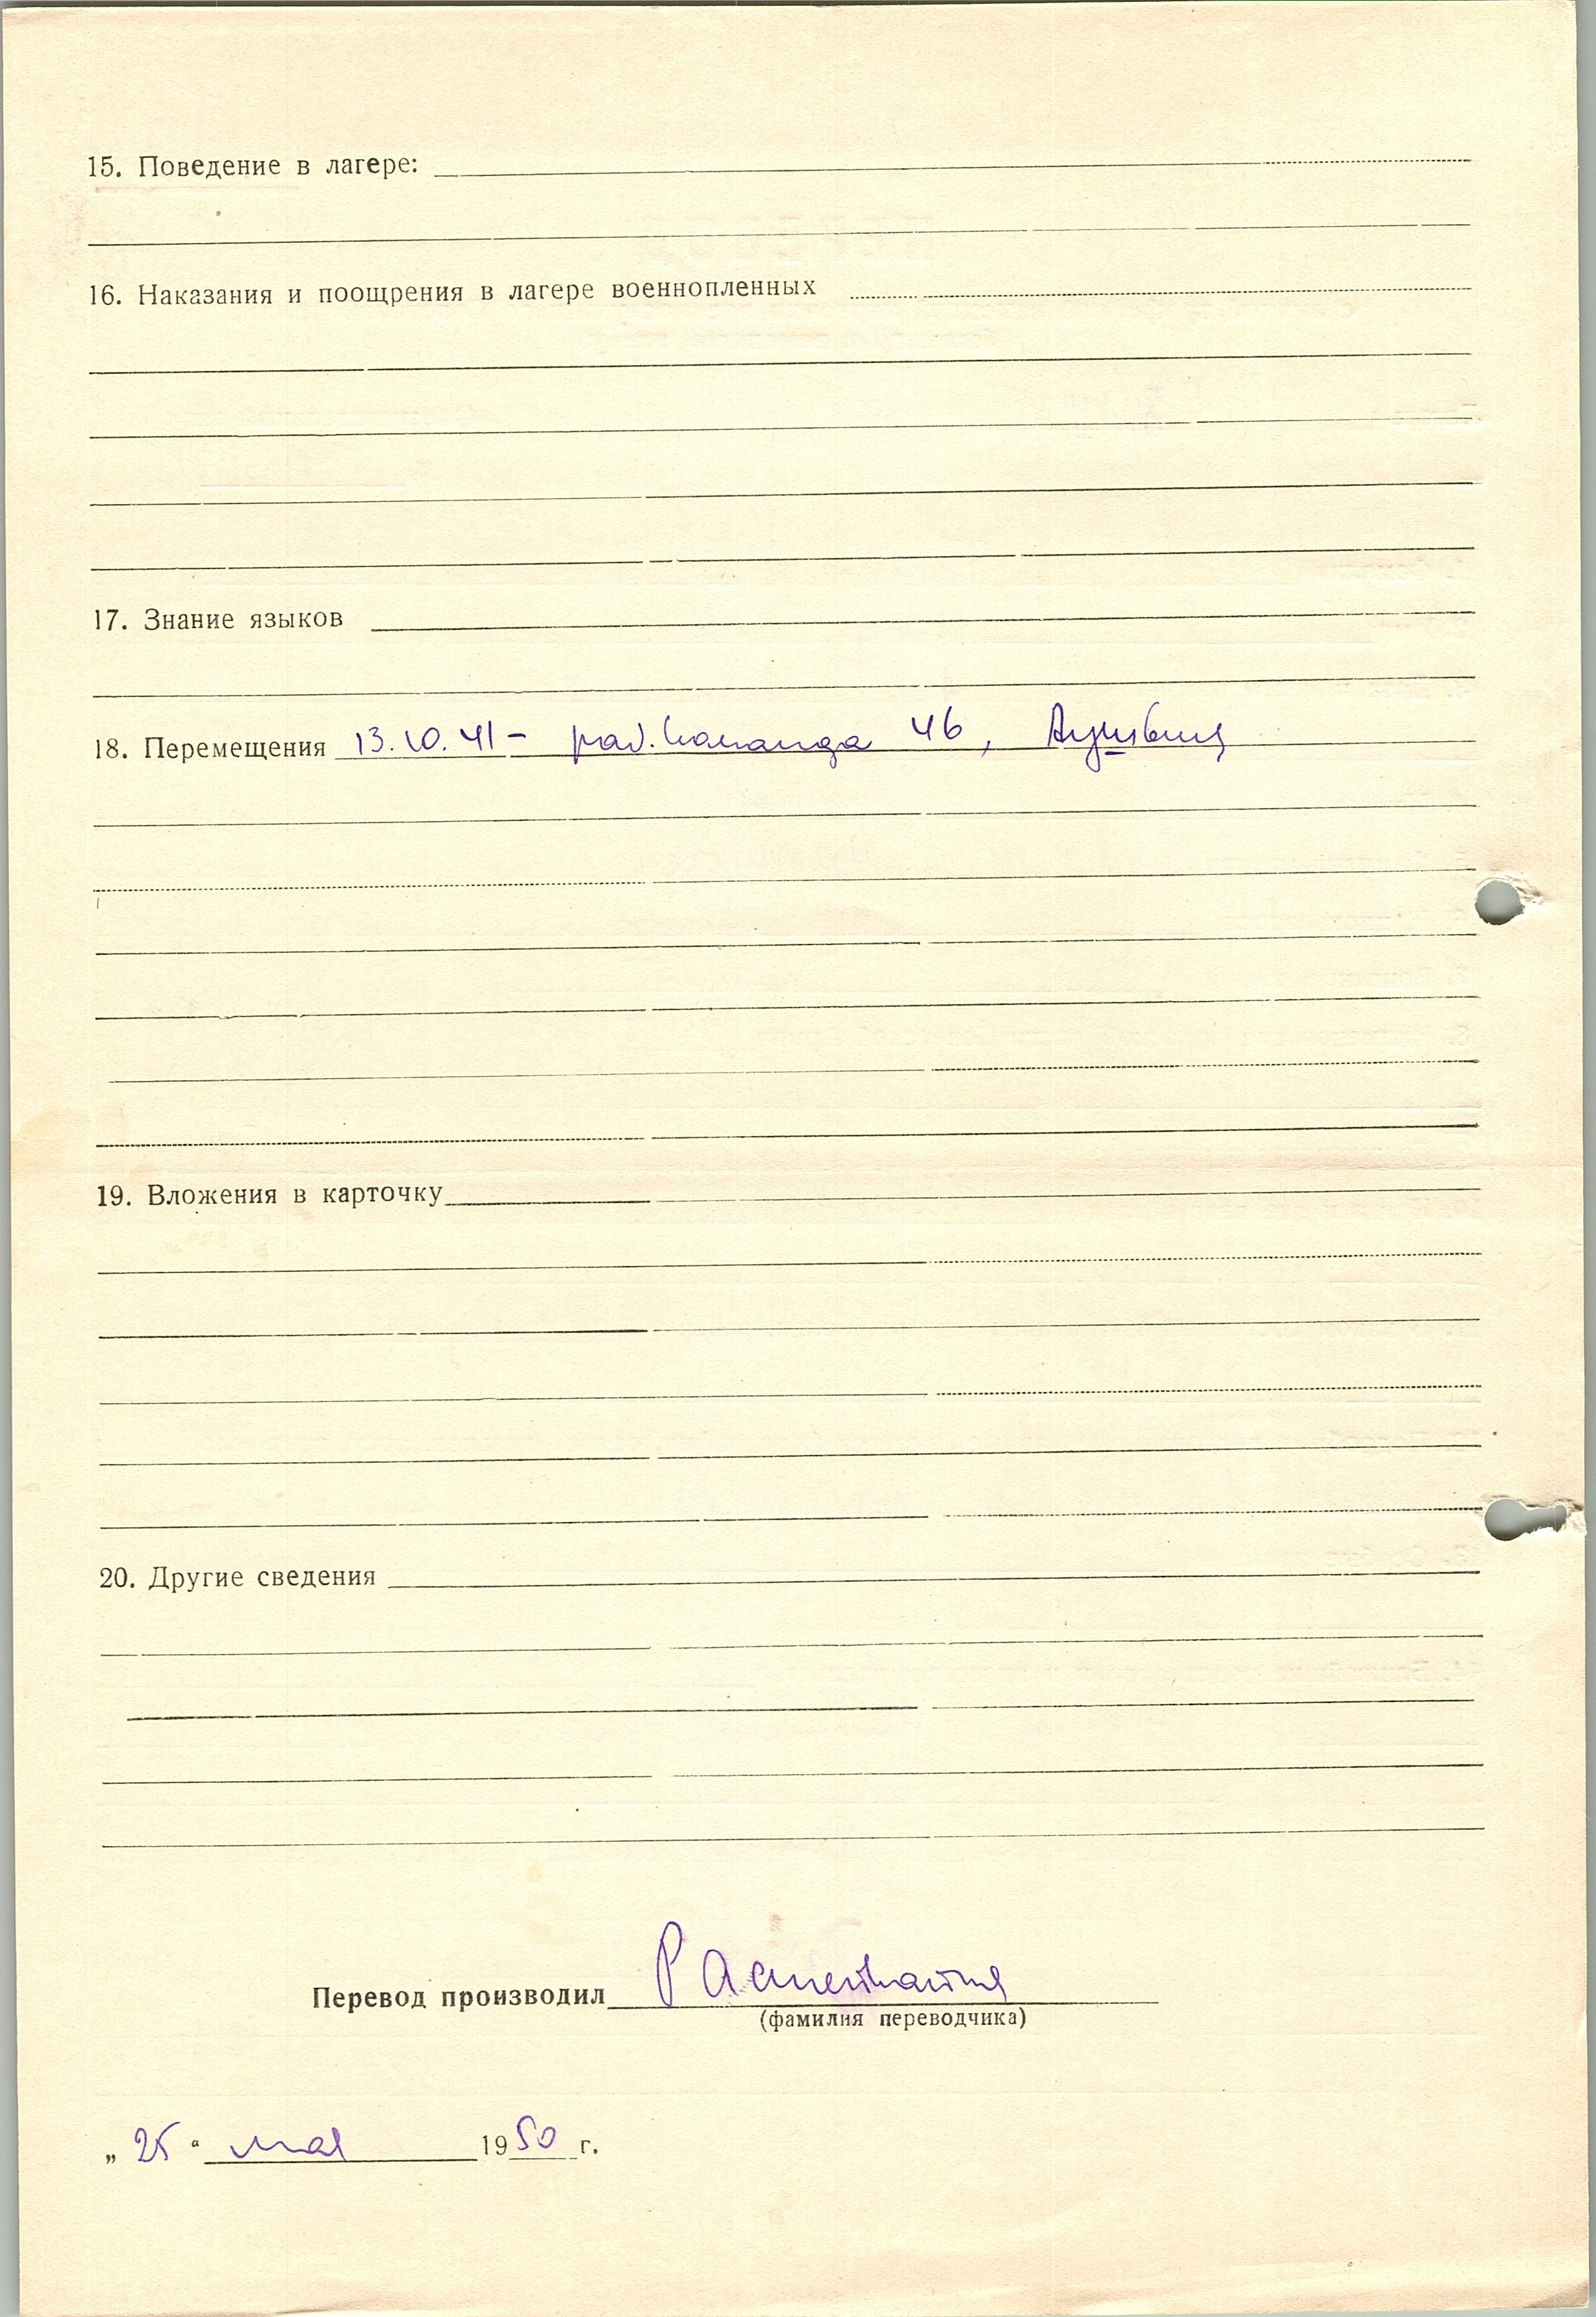 15. Поведение в лагере:
16. Наказания и поощрения в лагере военнопленных
17. Знание языков
18. Перемещения 13.10.41 - раб. команда 46, Аушвиц
19. Вложения в карточку
20. Другие сведения
Перевод производил
(фамилия переводчика)
„25“ мая 1950 г.